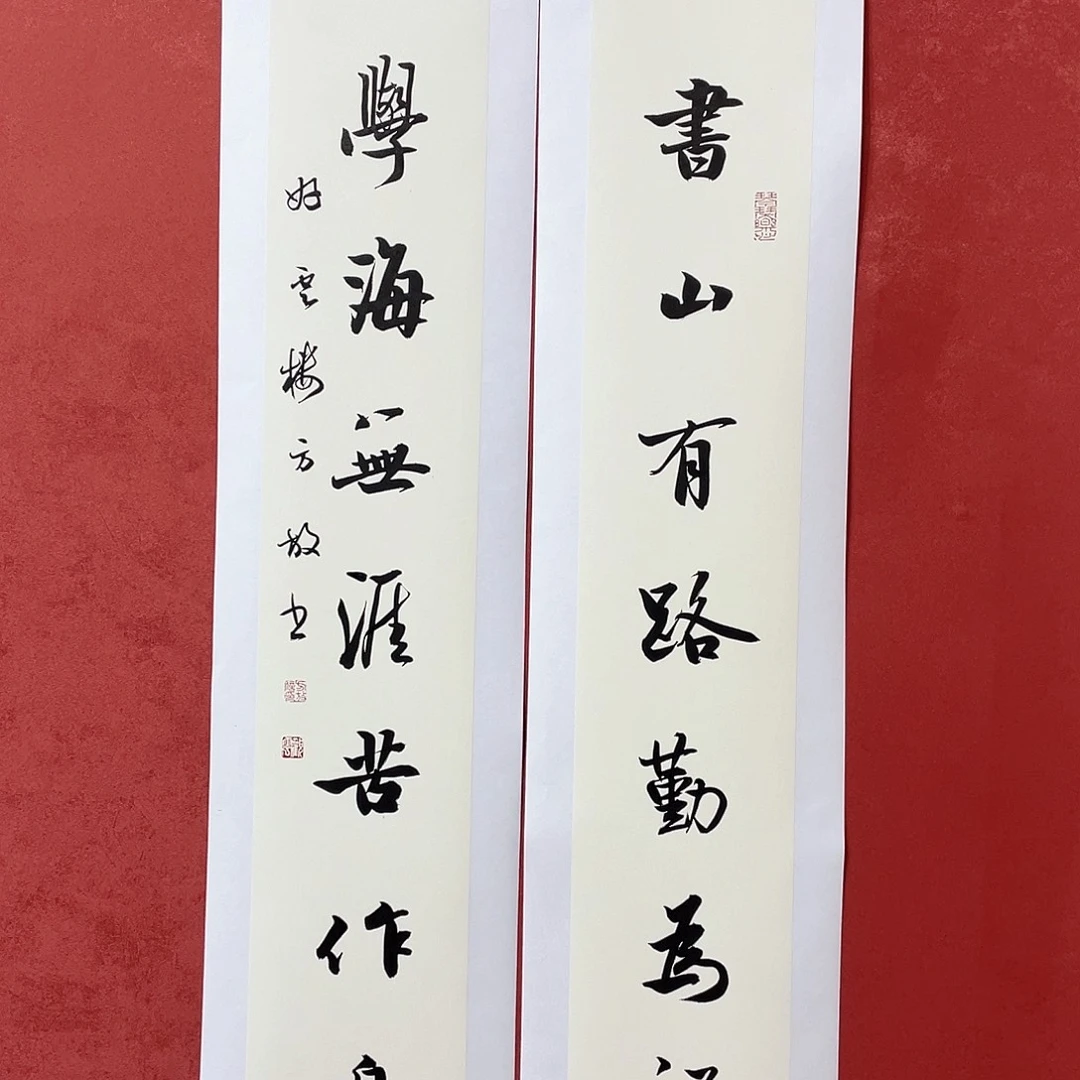 書山有路勤為
學海無涯苦作
好雲樓方敬書